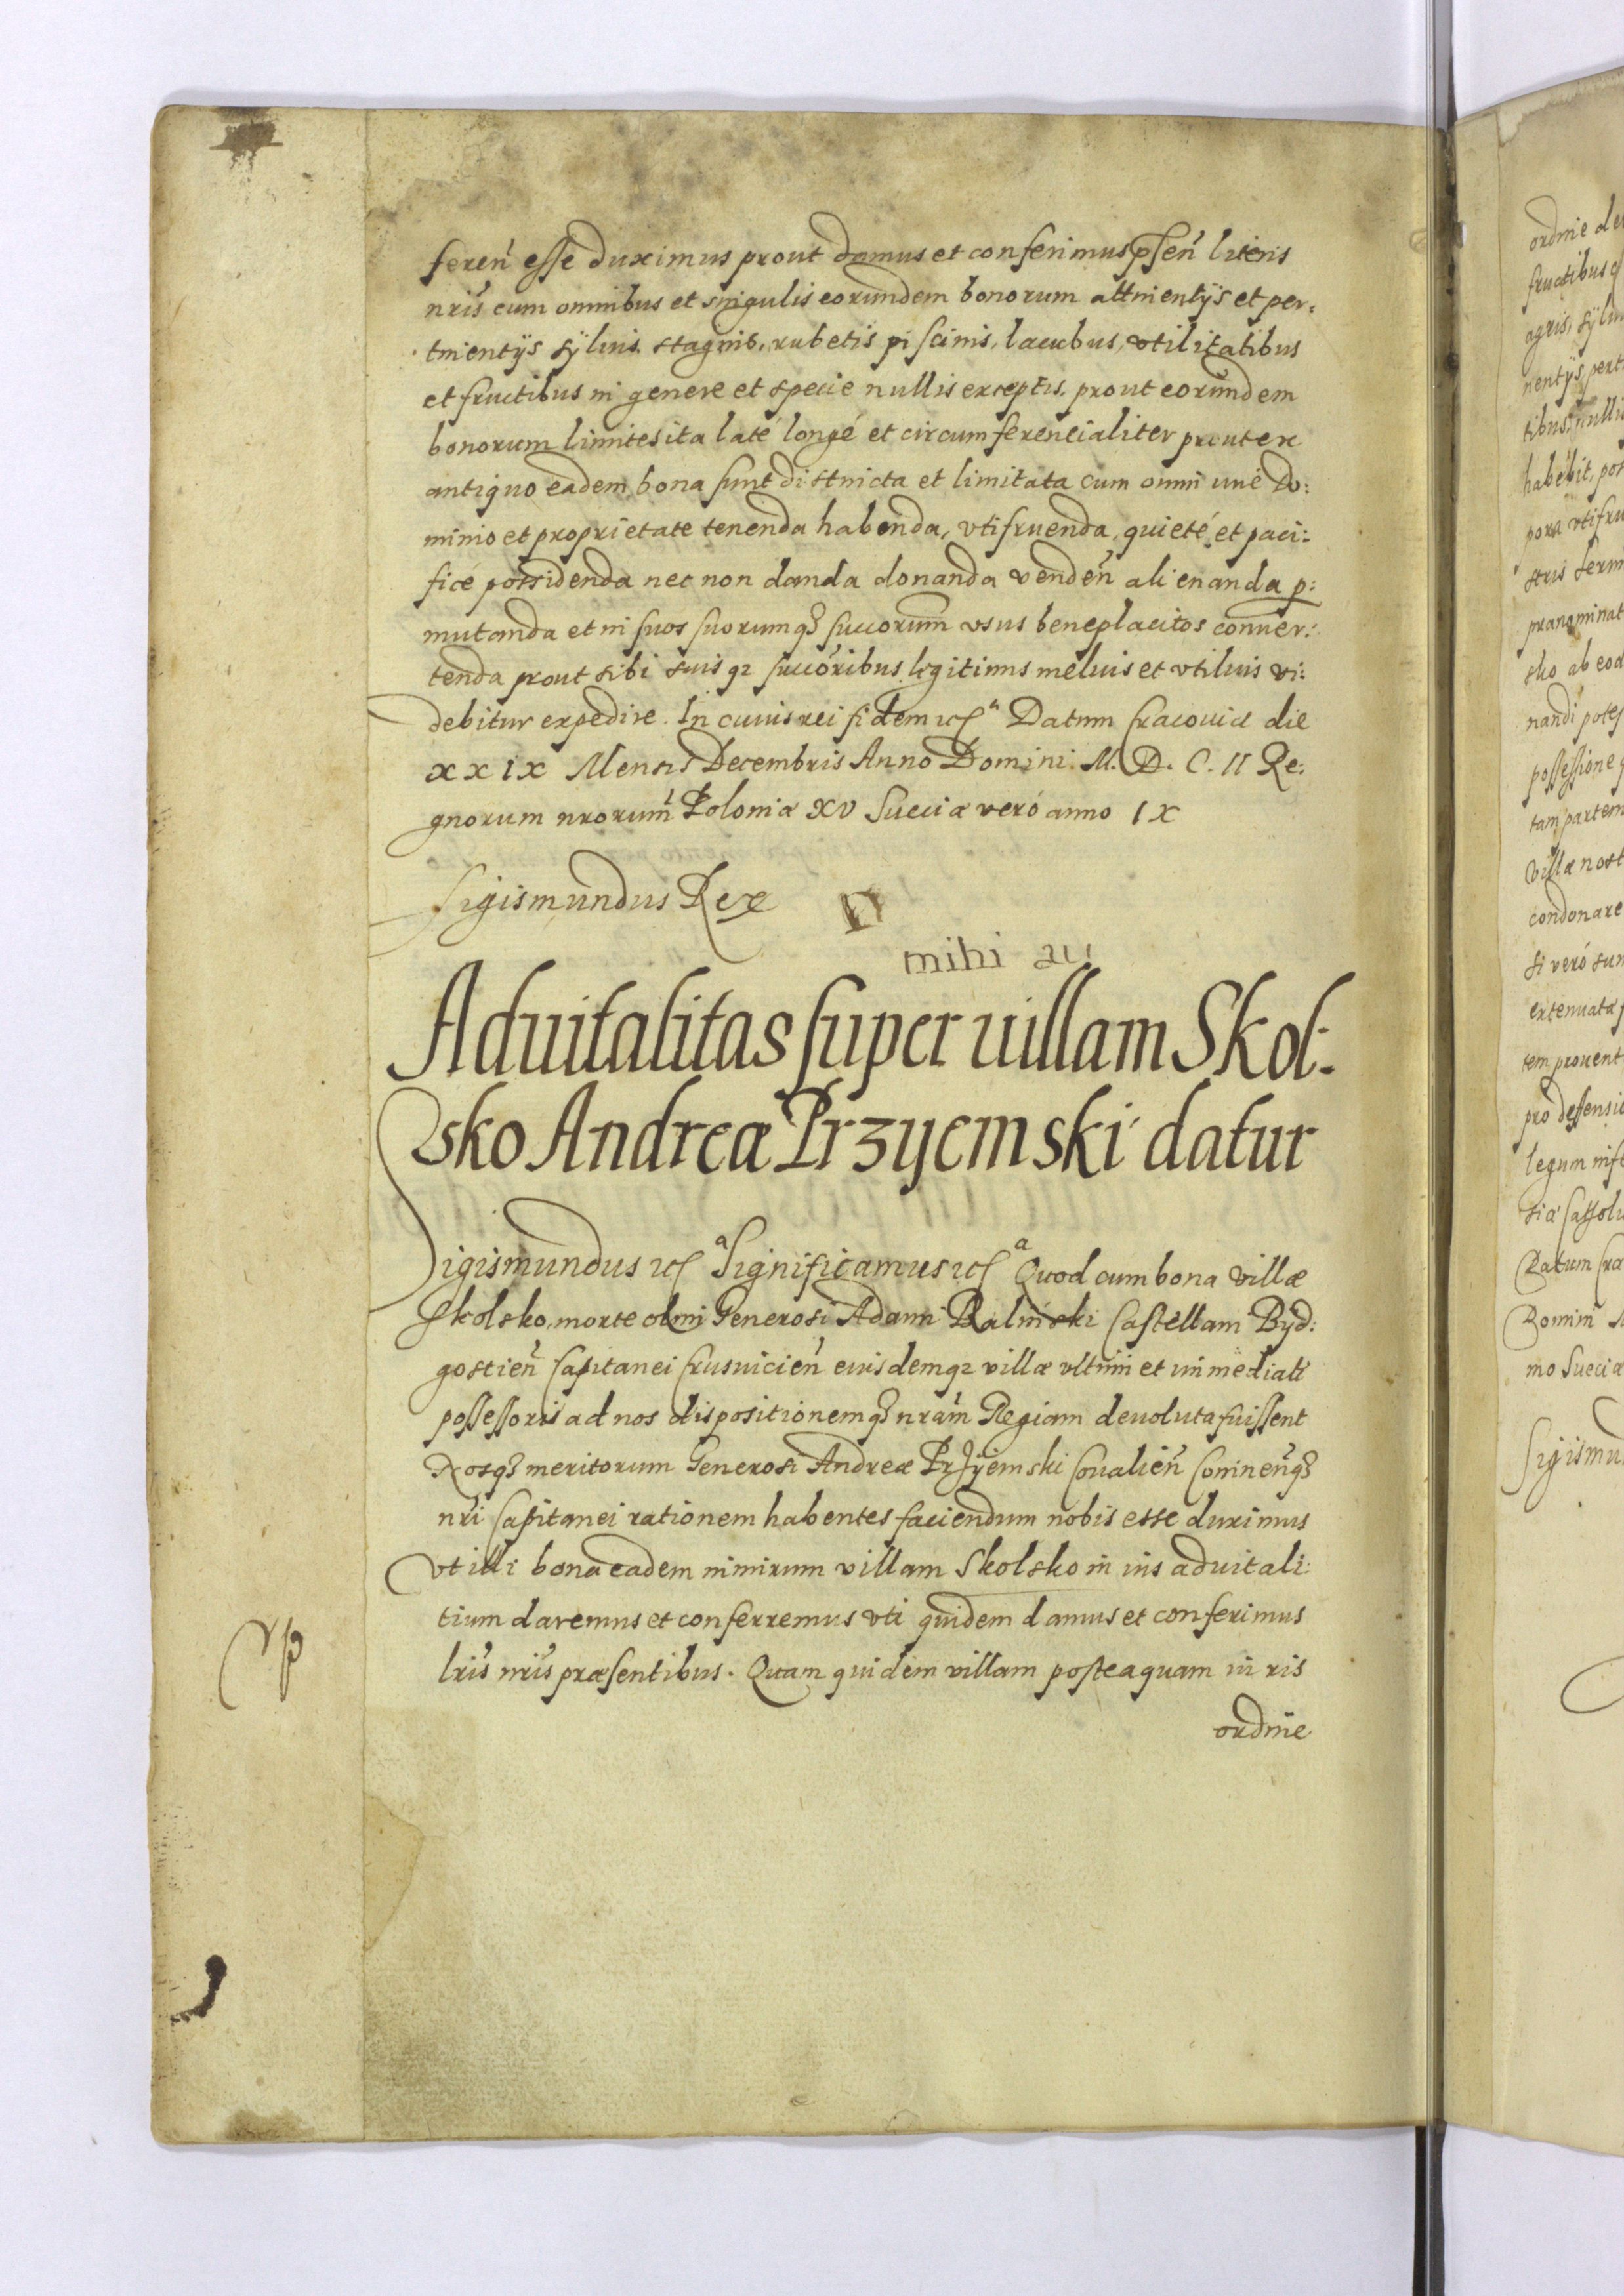 feren̄ esse duximus prout damus et conferimus pn̄sen̄ literis
nris̄ cum omnibus et singulis eorundem bonorum attinentÿs et per:
tinentÿs sÿluis, stagnis, rubetis piscinis, lacubus, vtilitatibus
et fructibus in genere et specie nullis exceptis, prout eorundem
bonorum limites ita laté longé et circumferencialiter prout ex
antiquo eadem bona sunt distincta et limitata cum omni iuré Do:
minio et proprietate tenenda habenda, vtifruenda, quieté et paci:
ficé possidenda nec non danda donanda venden̄ alienanda p:
mutanda et in suos suorumq3 succorum̄ vsus beneplacitos conuer:
tenda prout sibi suisq3 succoribus̄ legitimis melius et vtilius vi:
debitur expedire. In cuius rei fidem etc a Datum Cracouiæ die
XXIX Mensis Decembris Anno Domini. M. D. C. II Re:
gnorum nrorum̄ Poloniæ XV Sueciæ veró anno IX
Sigismundus Rex
mihi au
Aduitalitas super uillam Skol:
sko Andreæ Przyemski datur
Sigismundus etc a Significamus etc a Quod cum bona villæ
Skolsko, morte olim Generosi Adami Balinski Castellani Bÿd:
gostien̄ Capitanei Crusuicien̄ eiusdemq3 villæ vltimi et immediati
possessoris ad nos dispositionemq3 nram̄ Regiam deuoluta fuissent
Nosq3 meritorum Generosi Andreæ Przÿemski Coualien̄ Coninen̄q3
nrī Capitanei rationem habentes faciendum nobis esse duximus
vt illi bona eadem nimirum villam Skolsko in ius aduitali:
tium daremus et conferremus vti quidem damus et conferimus
lris̄ nris̄ præsentibus. Quam quidem villam posteaquam iuris
ordine
ordine
fructibus
agris, sÿlu
nentÿs pert
tibus, nullis
habebit, pos
pora vtifru
sko ab eod
nandi potes
possessione
tam partem
Villæ nost
condonare
si veró sum
extenuata
tem prouent
pro defensio
legum
Datum Cra
Domini
mo Sueciæ
Sigismu